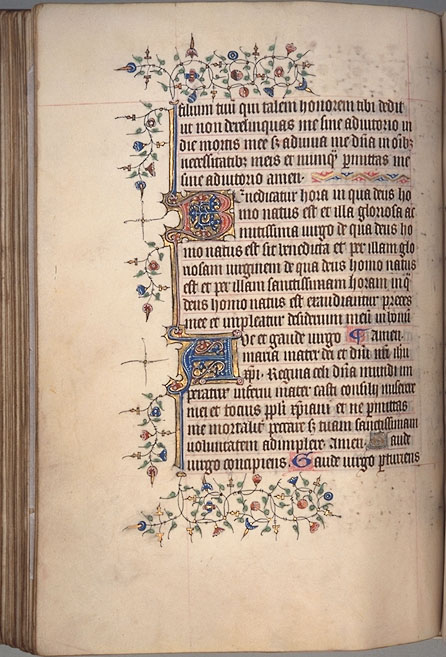 filium tuu qui talem honorem tibi dedit
ut non derelinquas me sine adiutorio in
die mortis mee s; adiuva me dña in oib;
necessitatib; meis et nunq̃ p̃mittas me
sine adiutorio amen.
Benedicatur hora in qua deus ho
mo natus est et illa gloriosa ac
mitissima uirgo de qua deus ho
mo natus est sit benedicta et per illam glo
riosam uirginem de qua deus homo natus
est et per illam sanctissimam horam in q̃
deus homo natus est exaudiantur preces
mee et impleatur desiderium meũ in bonũ
Aue et gaude uirgo amen.
maria mater dei et dñi nr̃i ihũ
xp̃i. Regina celi dña mundi im
peratrix inferni mater casti consilij miserere
mei et tocius pp̃li xp̃iani et ne p̃mittas
me mortaliter peccare s; tuam sanctissimam
uoluntatem adimplere. amen. Gaude
uirgo concipiens. Gaude uirgo p̃turiens